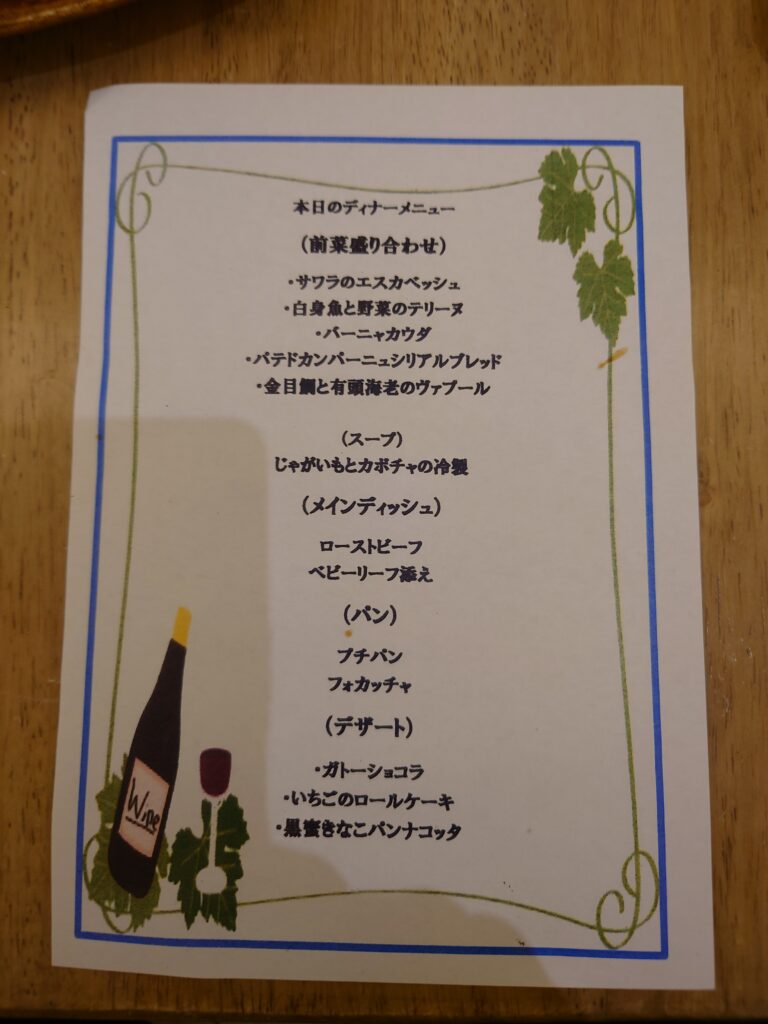 本日のディナーメニュー
（前菜盛り合わせ）
・サワラのエスカベッシュ
・白身魚と野菜のテリーヌ
・バーニャカウダ
・パテドカンパーニュシリアルブレッド
・金目鯛と有頭海老のヴァプール
（スープ）
じゃがいもとカボチャの冷製
（メインディッシュ）
ローストビーフ
ベビーリーフ添え
（パン）
プチパン
フォカッチャ
（デザート）
・ガトーショコラ
・いちごのロールケーキ
・黒蜜きなこパンナコッタ
Wine